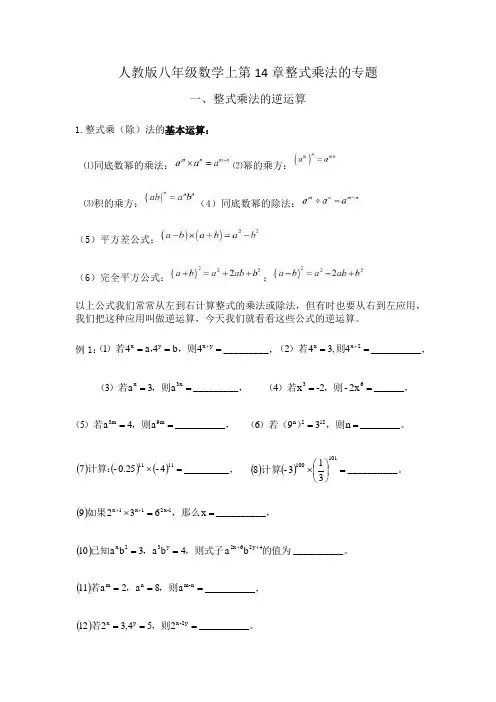 人教版八年级数学上第14章整式乘法的专题
一、整式乘法的逆运算
1.整式乘（除）法的基本运算：
⑴同底数幂的乘法：a^m×a^n=a^{m+n} ⑵幂的乘方：(a^m)^n=a^{mn}
⑶积的乘方：(ab)^n=a^n b^n （4）同底数幂的除法：a^m÷a^n=a^{m-n}
（5）平方差公式：(a-b)×(a+b)=a^2-b^2
（6）完全平方公式：(a+b)^2=a^2+2ab+b^2；(a-b)^2=a^2-2ab+b^2
以上公式我们常常从左到右计算整式的乘法或除法，但有时也要从右到左应用，
我们把这种应用叫做逆运算，今天我们就看看这些公式的逆运算。
例1:（1）若4^x=a，4^y=b，则4^{x+y}=_________，（2）若4^x=3,则4^{x+2}=__________，
（3）若a^x=3，则a^{3x}=_________， （4）若x^3=-2，则-2x^6=______，
（5）若a^{3m}=4，则a^{9m}=__________， （6）若（9^n）^2=3^{12}，则n=________。
(7)计算：(-0.25)^{11}×(-4)^{11}=_________， (8)计算(-3)^{100}×(1/3)^{101}=__________。
(9)如果2^{x+1}×3^{x+1}=6^{2x-1}，那么x=__________，
(10)已知a^x b^2=3，a^3 b^y=4，则式子a^{2x+6}b^{2y+4}的值为__________。
(11)若a^m=2，a^n=8，则a^{m-n}=__________，
(12)若2^x=3,4^y=5，则2^{x-2y}=__________。